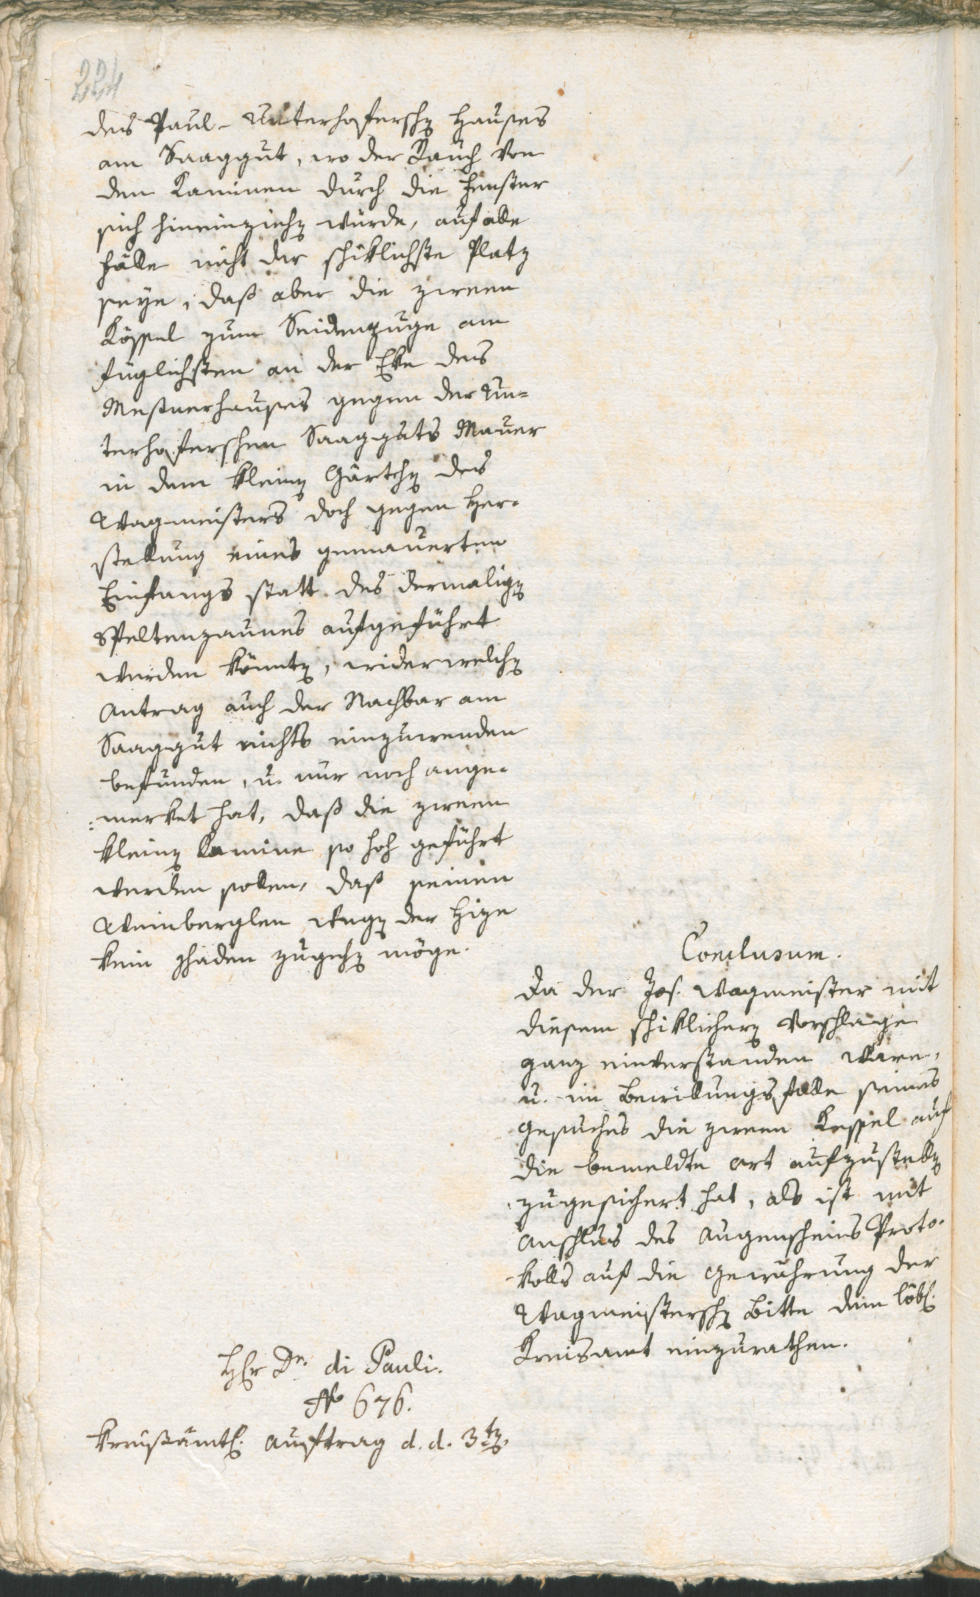 224
des Paul-Unterhoferschen Hauses
am Saaggut, wo der Rauch von
den Kaminen durch die Fenster
sich hineinziehen würde, auf alle
Fälle nicht der schiklichste Platz
seye, daß aber die zween
Kössel zum Seidenzuge am
füglichsten an der Eke des
Meßnerhauses gegen der Un-
terhoferschen Saagguts Mauer
in dem kleinen Gärtchen des
Wagmeisters doch gegen Her-
stellung eines gemauerten
Einfangs statt des dermaligen
Speltenzaunes aufgeführt
werden könnten, wider welchen
Antrag auch der Nachbar am
Saaggut nichts einzuwenden
befunden, u. nur noch ange-
merket hat, daß die zween
kleinen Kamine so hoh geführt
werden sollen, daß seinen
Weinberglen wegen der Hize
kein schaden zugehen möge.
Conclusum.
Da der Jos. Wagmeister mit
diesem schiklichern Vorschlage
ganz einverstanden ware,
u. im Bewillungsfalle seines
Gesuches die zween Kessel auf
die bemeldte art aufzustellen
zugesichert hat, als ist mit
Anschlus des Augenscheins Proto-
kolls auf die Gewährung der
Wagmeisterschen Bitte dem löbl.
Kreisamt einzurathen.
Hr Dr. di Pauli.
No 676.
Kreisämtl. Auftrag d. d. 3ten